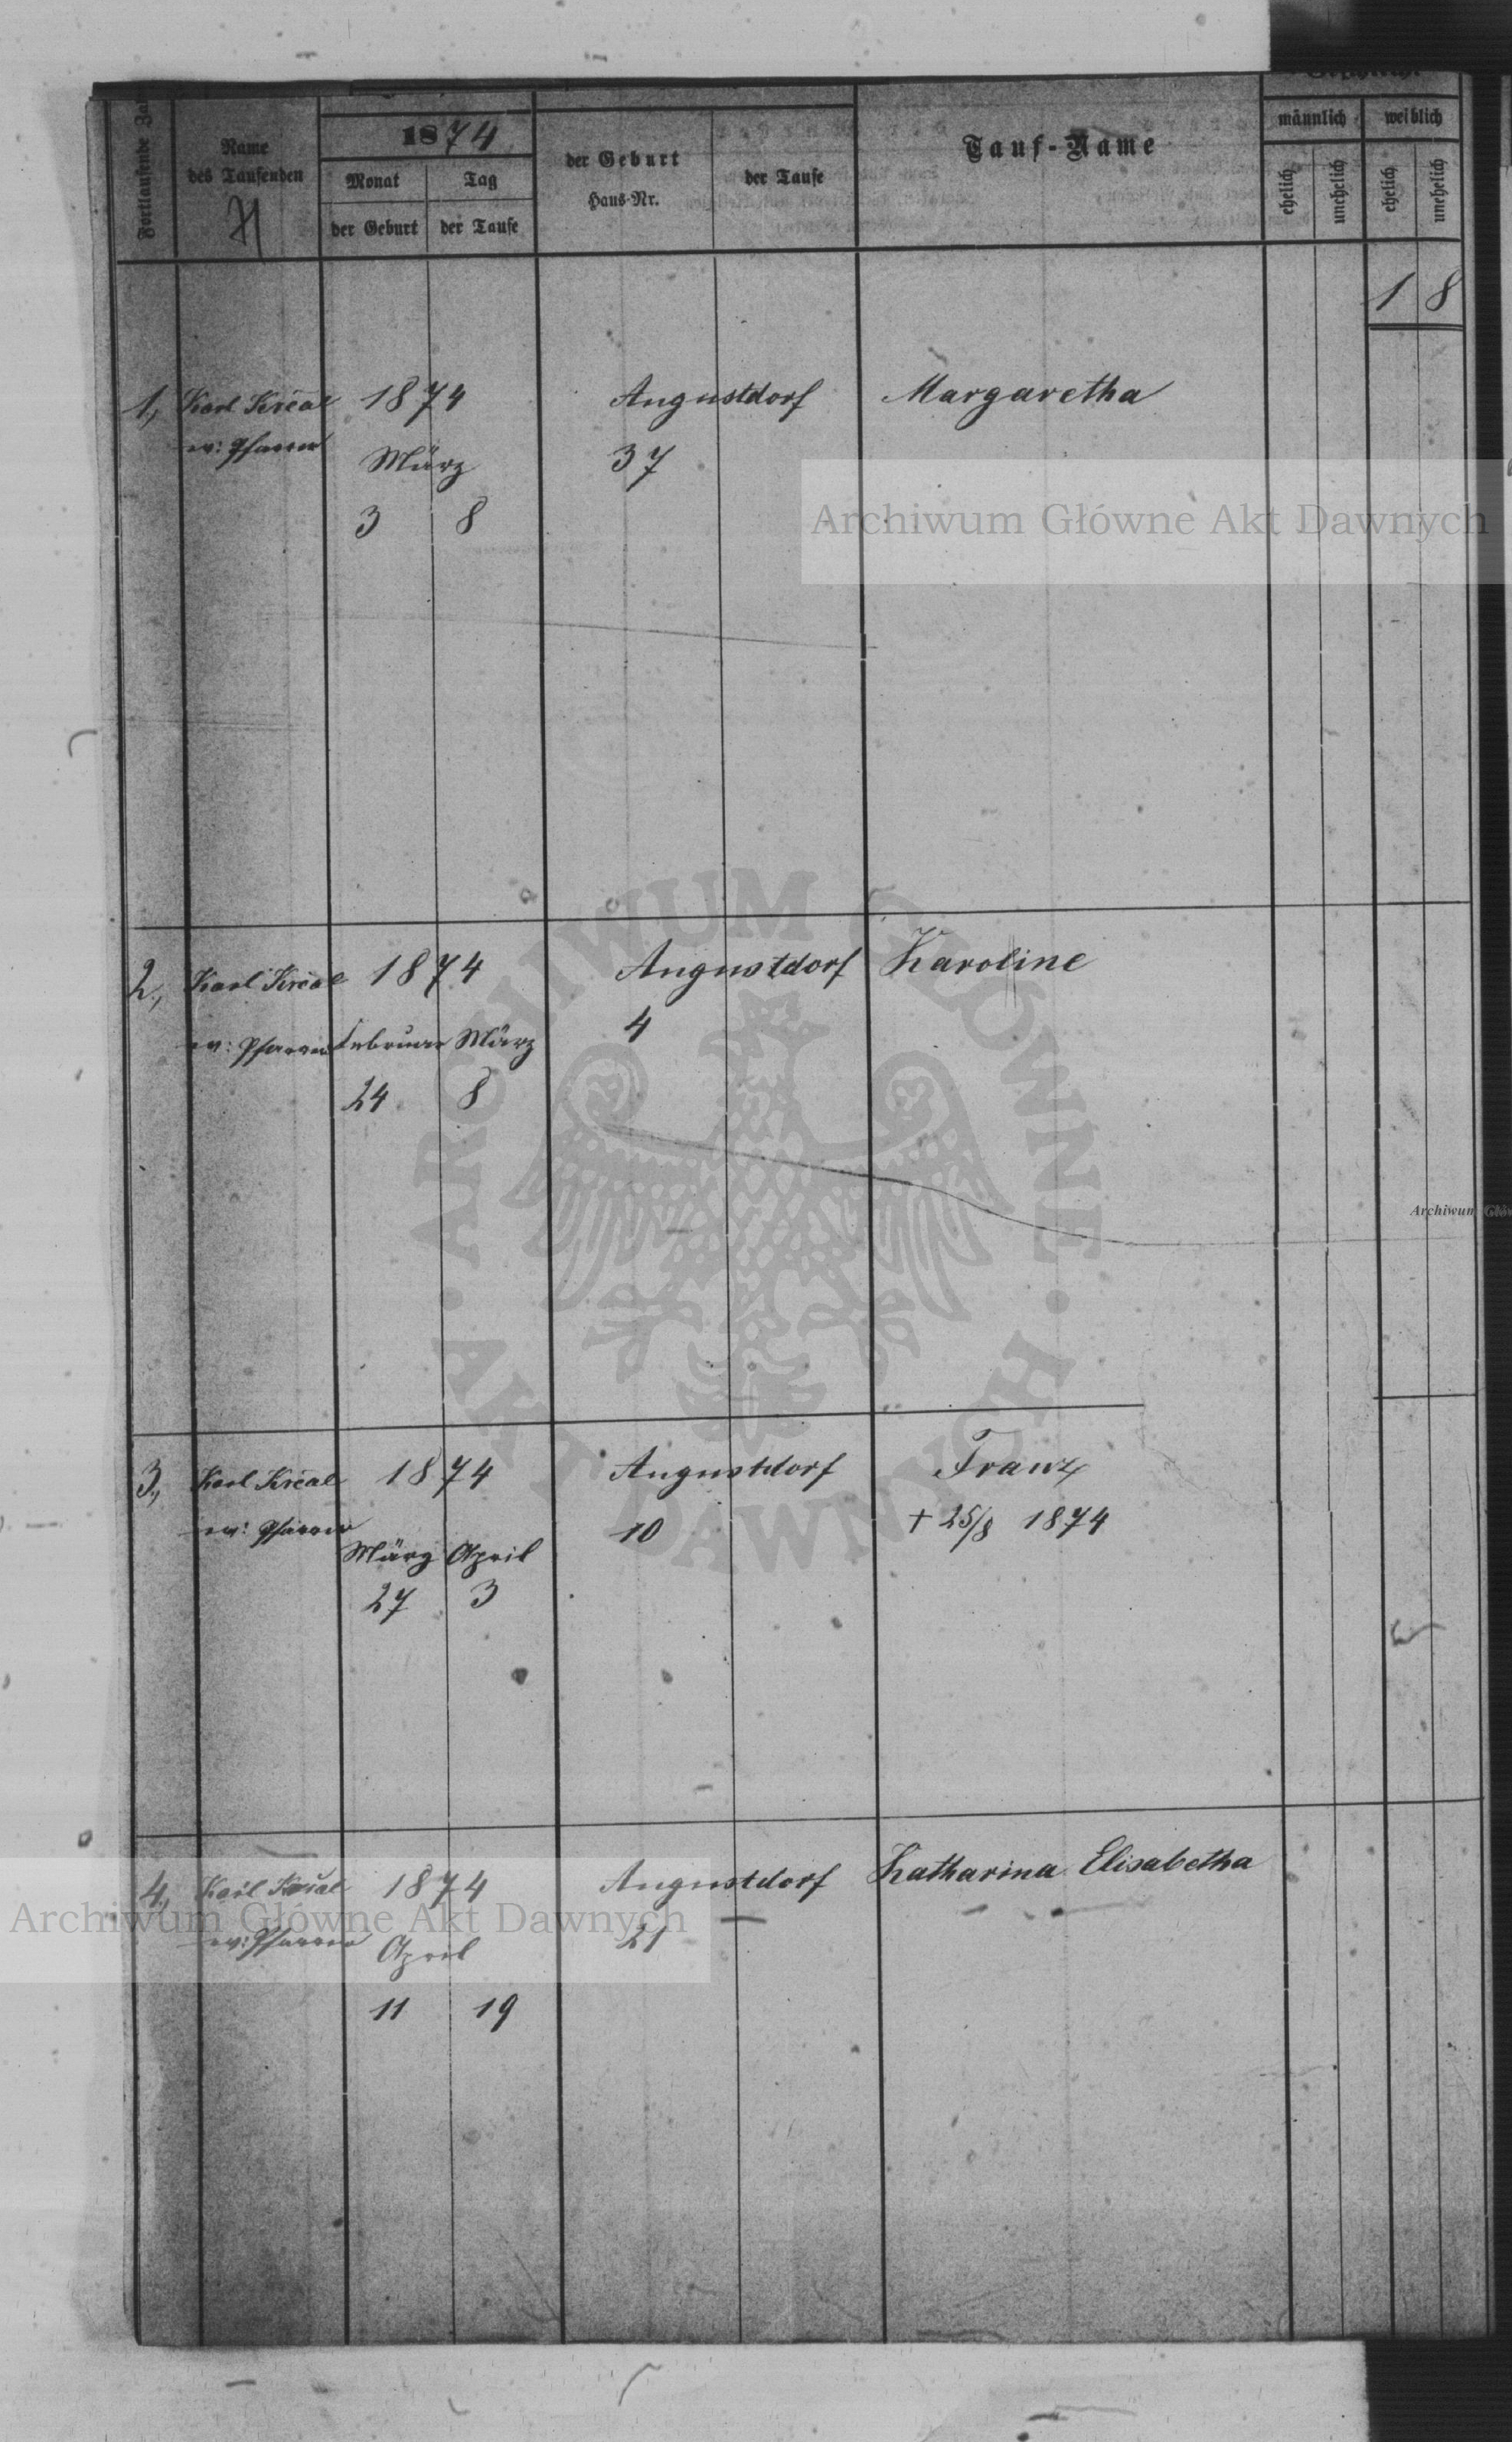 Fortlaufende Za
Name
des Taufenden
1874
Monat
Tag
der Geburt
der Taufe
der Geburt
Haus-Nr.
der Taufe
Tauf-Name
männlich
weiblich
ehelich
unehelich
ehelich
unehelich
1 8
1, Karl Krcal 1874 Augustdorf Margaretha
ev: Pfarrer März 37
3 8
Archiwum Główne Akt Dawnych
2, Karl Krcal 1874 Augustdorf Karoline
ev: Pfarrer Februar März 4
24 8
ARCHIWUM GŁÓWNE AKT DAWNYCH
Archiwum Głów
3, Karl Krcal 1874 Augustdorf Franz
ev: Pfarrer März April 10 + 25/8 1874
27 3
4, Karl Krcal 1874 Augustdorf Katharina Elisabetha
Archiwum Główne Akt Dawnych
ev: Pfarrer April 21
11 19